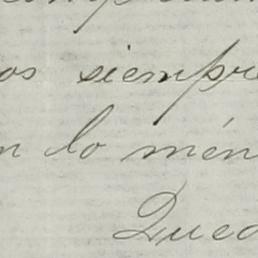 os siempre
n lo mén
Qued